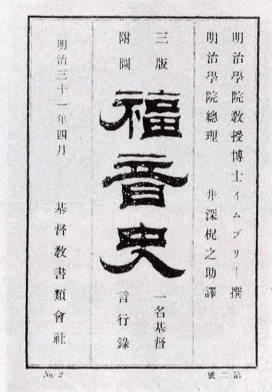 明治學院敎授博士イムブリー撰
明治學院總理 井深梶之助譯
三版
附圖
福音史
一名基督
言行錄
明治三十一年四月 基督敎書類會社
第二號
No. 2